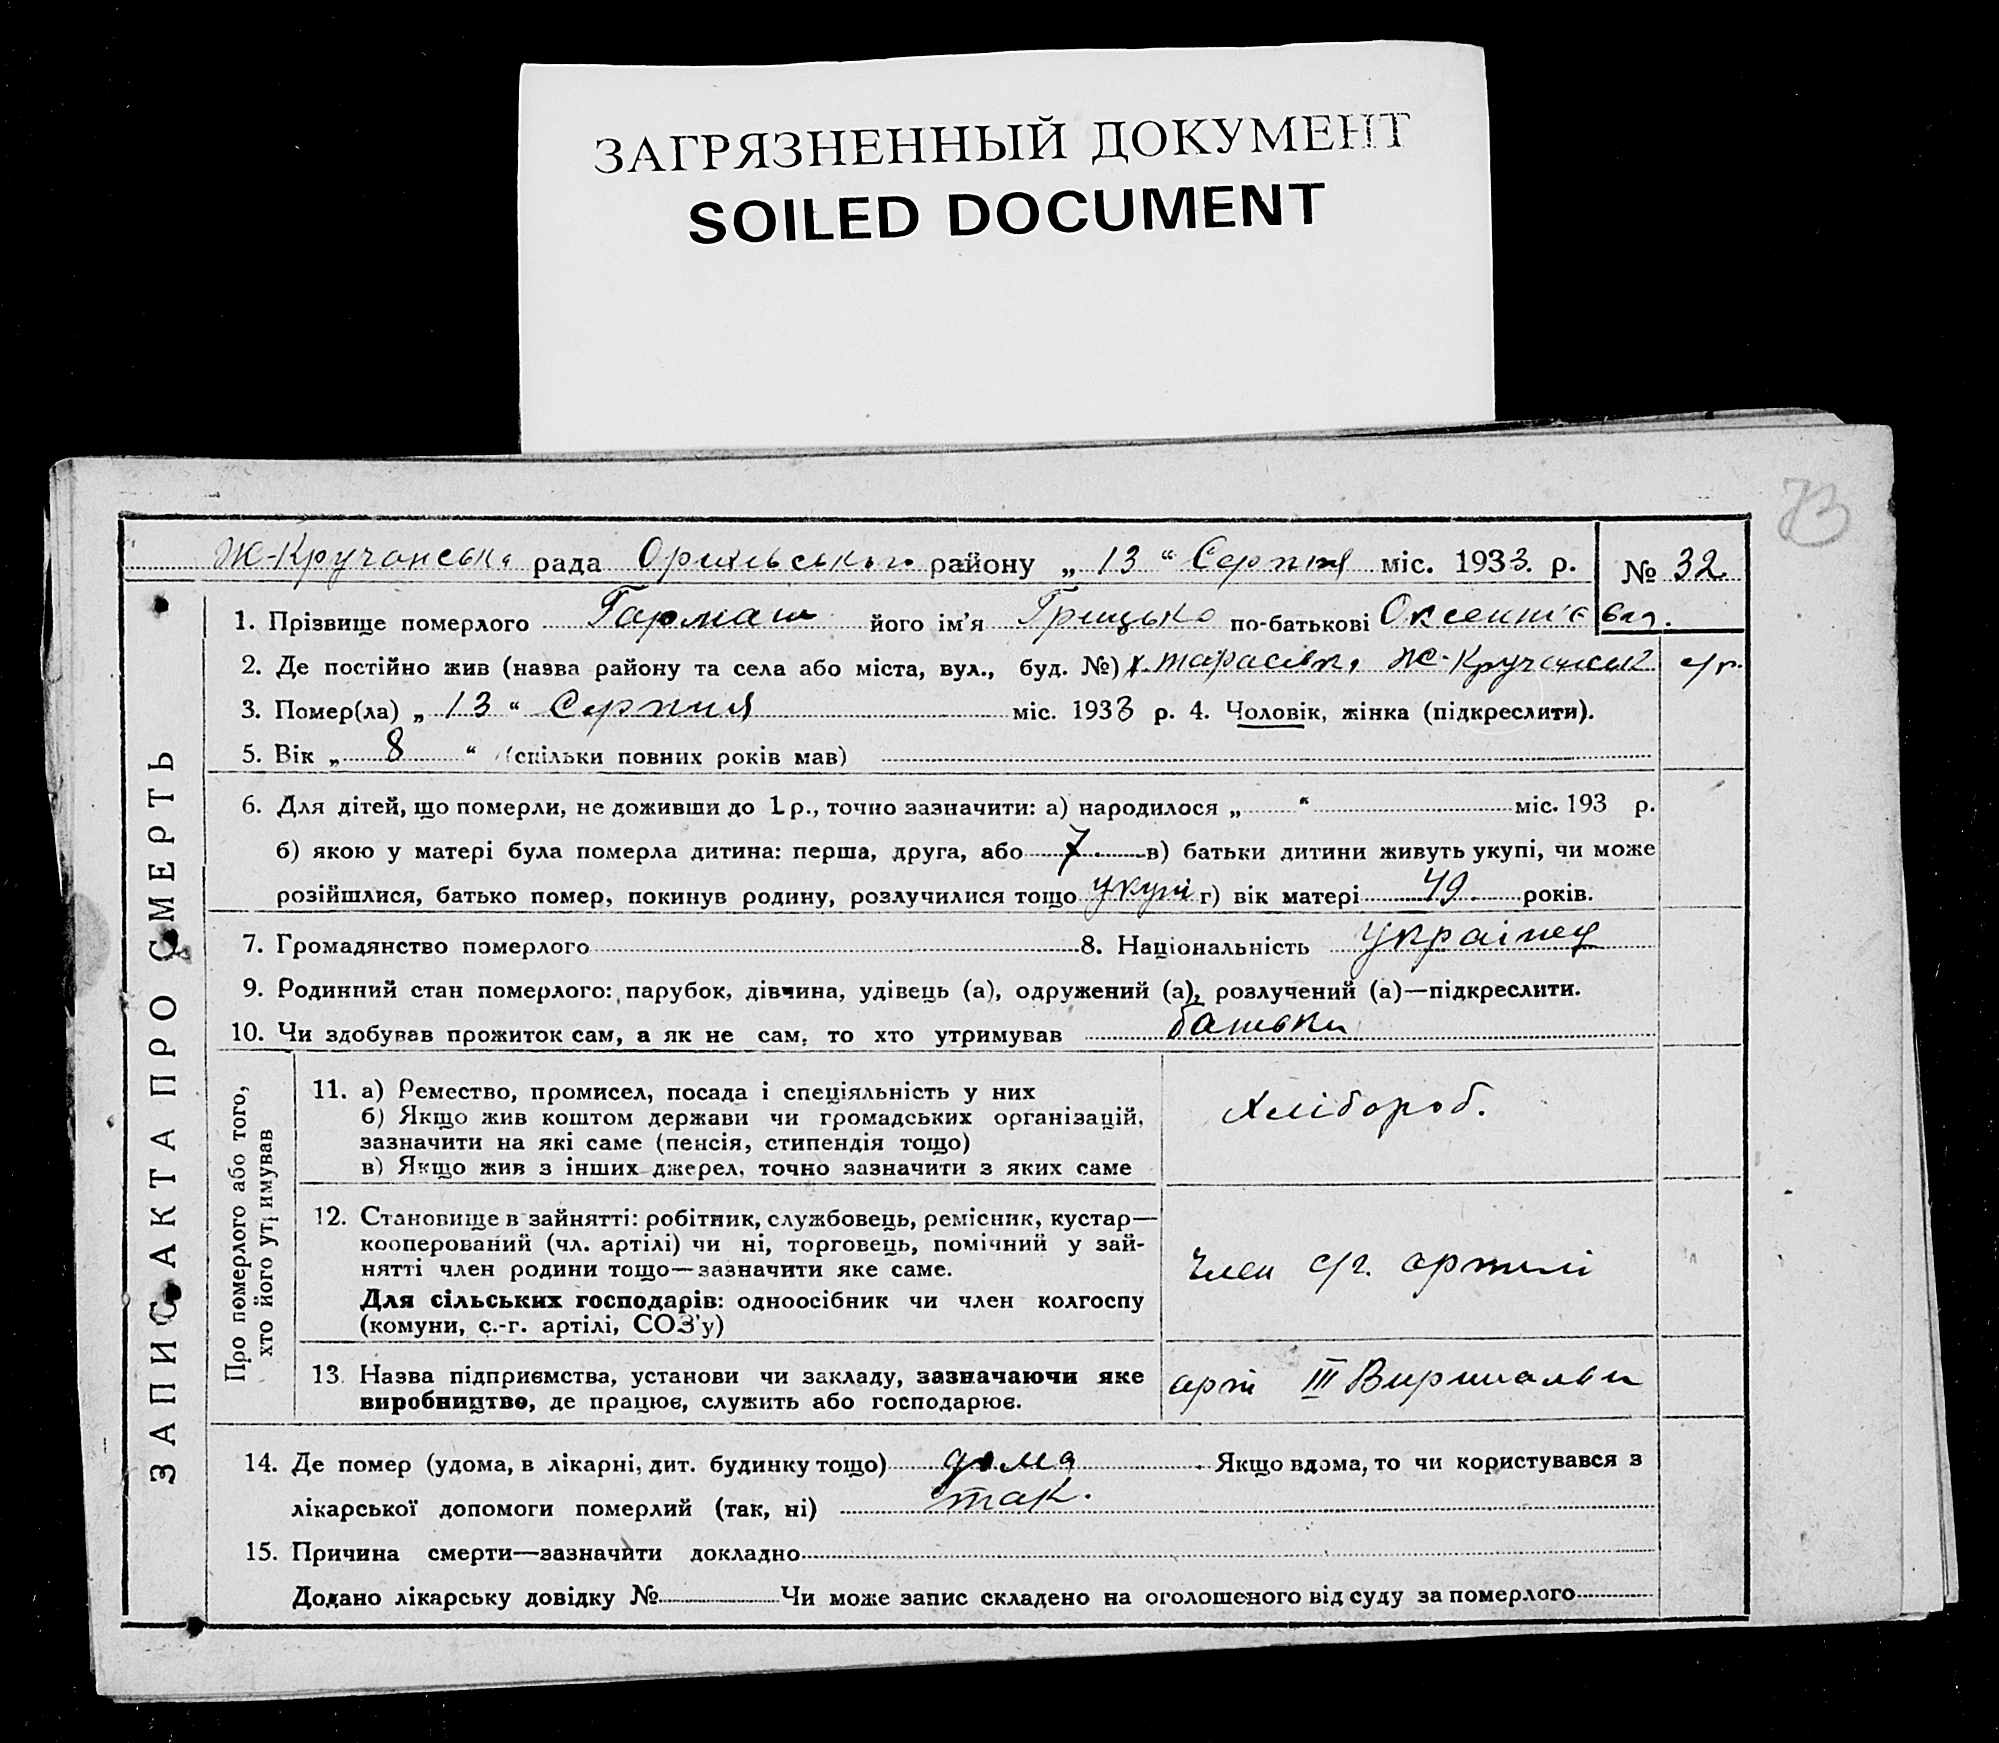 ЗАГРЯЗНЕННЫЙ ДОКУМЕНТ
SOILED DOCUMENT
73
Ж-Кручанська рада Оріхівського району „ 13 “ Серпня міс. 1933. р. № 32.
1. Прізвище померлого Гармаш його ім’я Грицько по-батькові Оксентієвич.
2. Де постійно жив (назва району та села або міста, вул., буд. №) х. Тарасівка, Ж-Кручанської с/р.
3. Помер(ла) „ 13 “ Серпня міс. 1933 р. 4. Чоловік, жінка (підкреслити).
5. Вік „ 8 “ (скільки повних років мав)
6. Для дітей, що померли, не доживши до 1 р., точно зазначити: а) народилося „ “ міс. 193 р.
б) якою у матері була померла дитина: перша, друга, або 7. в) батьки дитини живуть укупі, чи може
розійшлися, батько помер, покинув родину, розлучилися тощо укупі г) вік матері 49 років.
7. Громадянство померлого 8. Національність Українец
9. Родинний стан померлого: парубок, дівчина, удівець (а), одружений (а), розлучений (а)—підкреслити.
10. Чи здобував прожиток сам, а як не сам, то хто утримував батьки
ЗАПИС АКТА ПРО СМЕРТЬ
Про померлого або того,
хто його утримував
11. а) Ремество, промисел, посада і спеціяльність у них
б) Якщо жив коштом держави чи громадських організацій,
зазначити на які саме (пенсія, стипендія тощо)
в) Якщо жив з інших джерел, точно зазначити з яких саме
Хлібороб.
12. Становище в зайнятті: робітник, службовець, ремісник, кустар—
кооперований (чл. артілі) чи ні, торговець, помічний у зай-
нятті член родини тощо—зазначити яке саме.
Для сільських господарів: одноосібник чи член колгоспу
(комуни, с.-г. артілі, СОЗ’у)
Член с/г. артілі
13. Назва підприємства, установи чи закладу, зазначаючи яке
виробництво, де працює, служить або господарює.
арт III Вирішальн
14. Де помер (удома, в лікарні, дит. будинку тощо) дома Якщо вдома, то чи користувався з
лікарської допомоги померлий (так, ні) так.
15. Причина смерти—зазначити докладно
Додано лікарську довідку № Чи може запис складено на оголошеного від суду за померлого